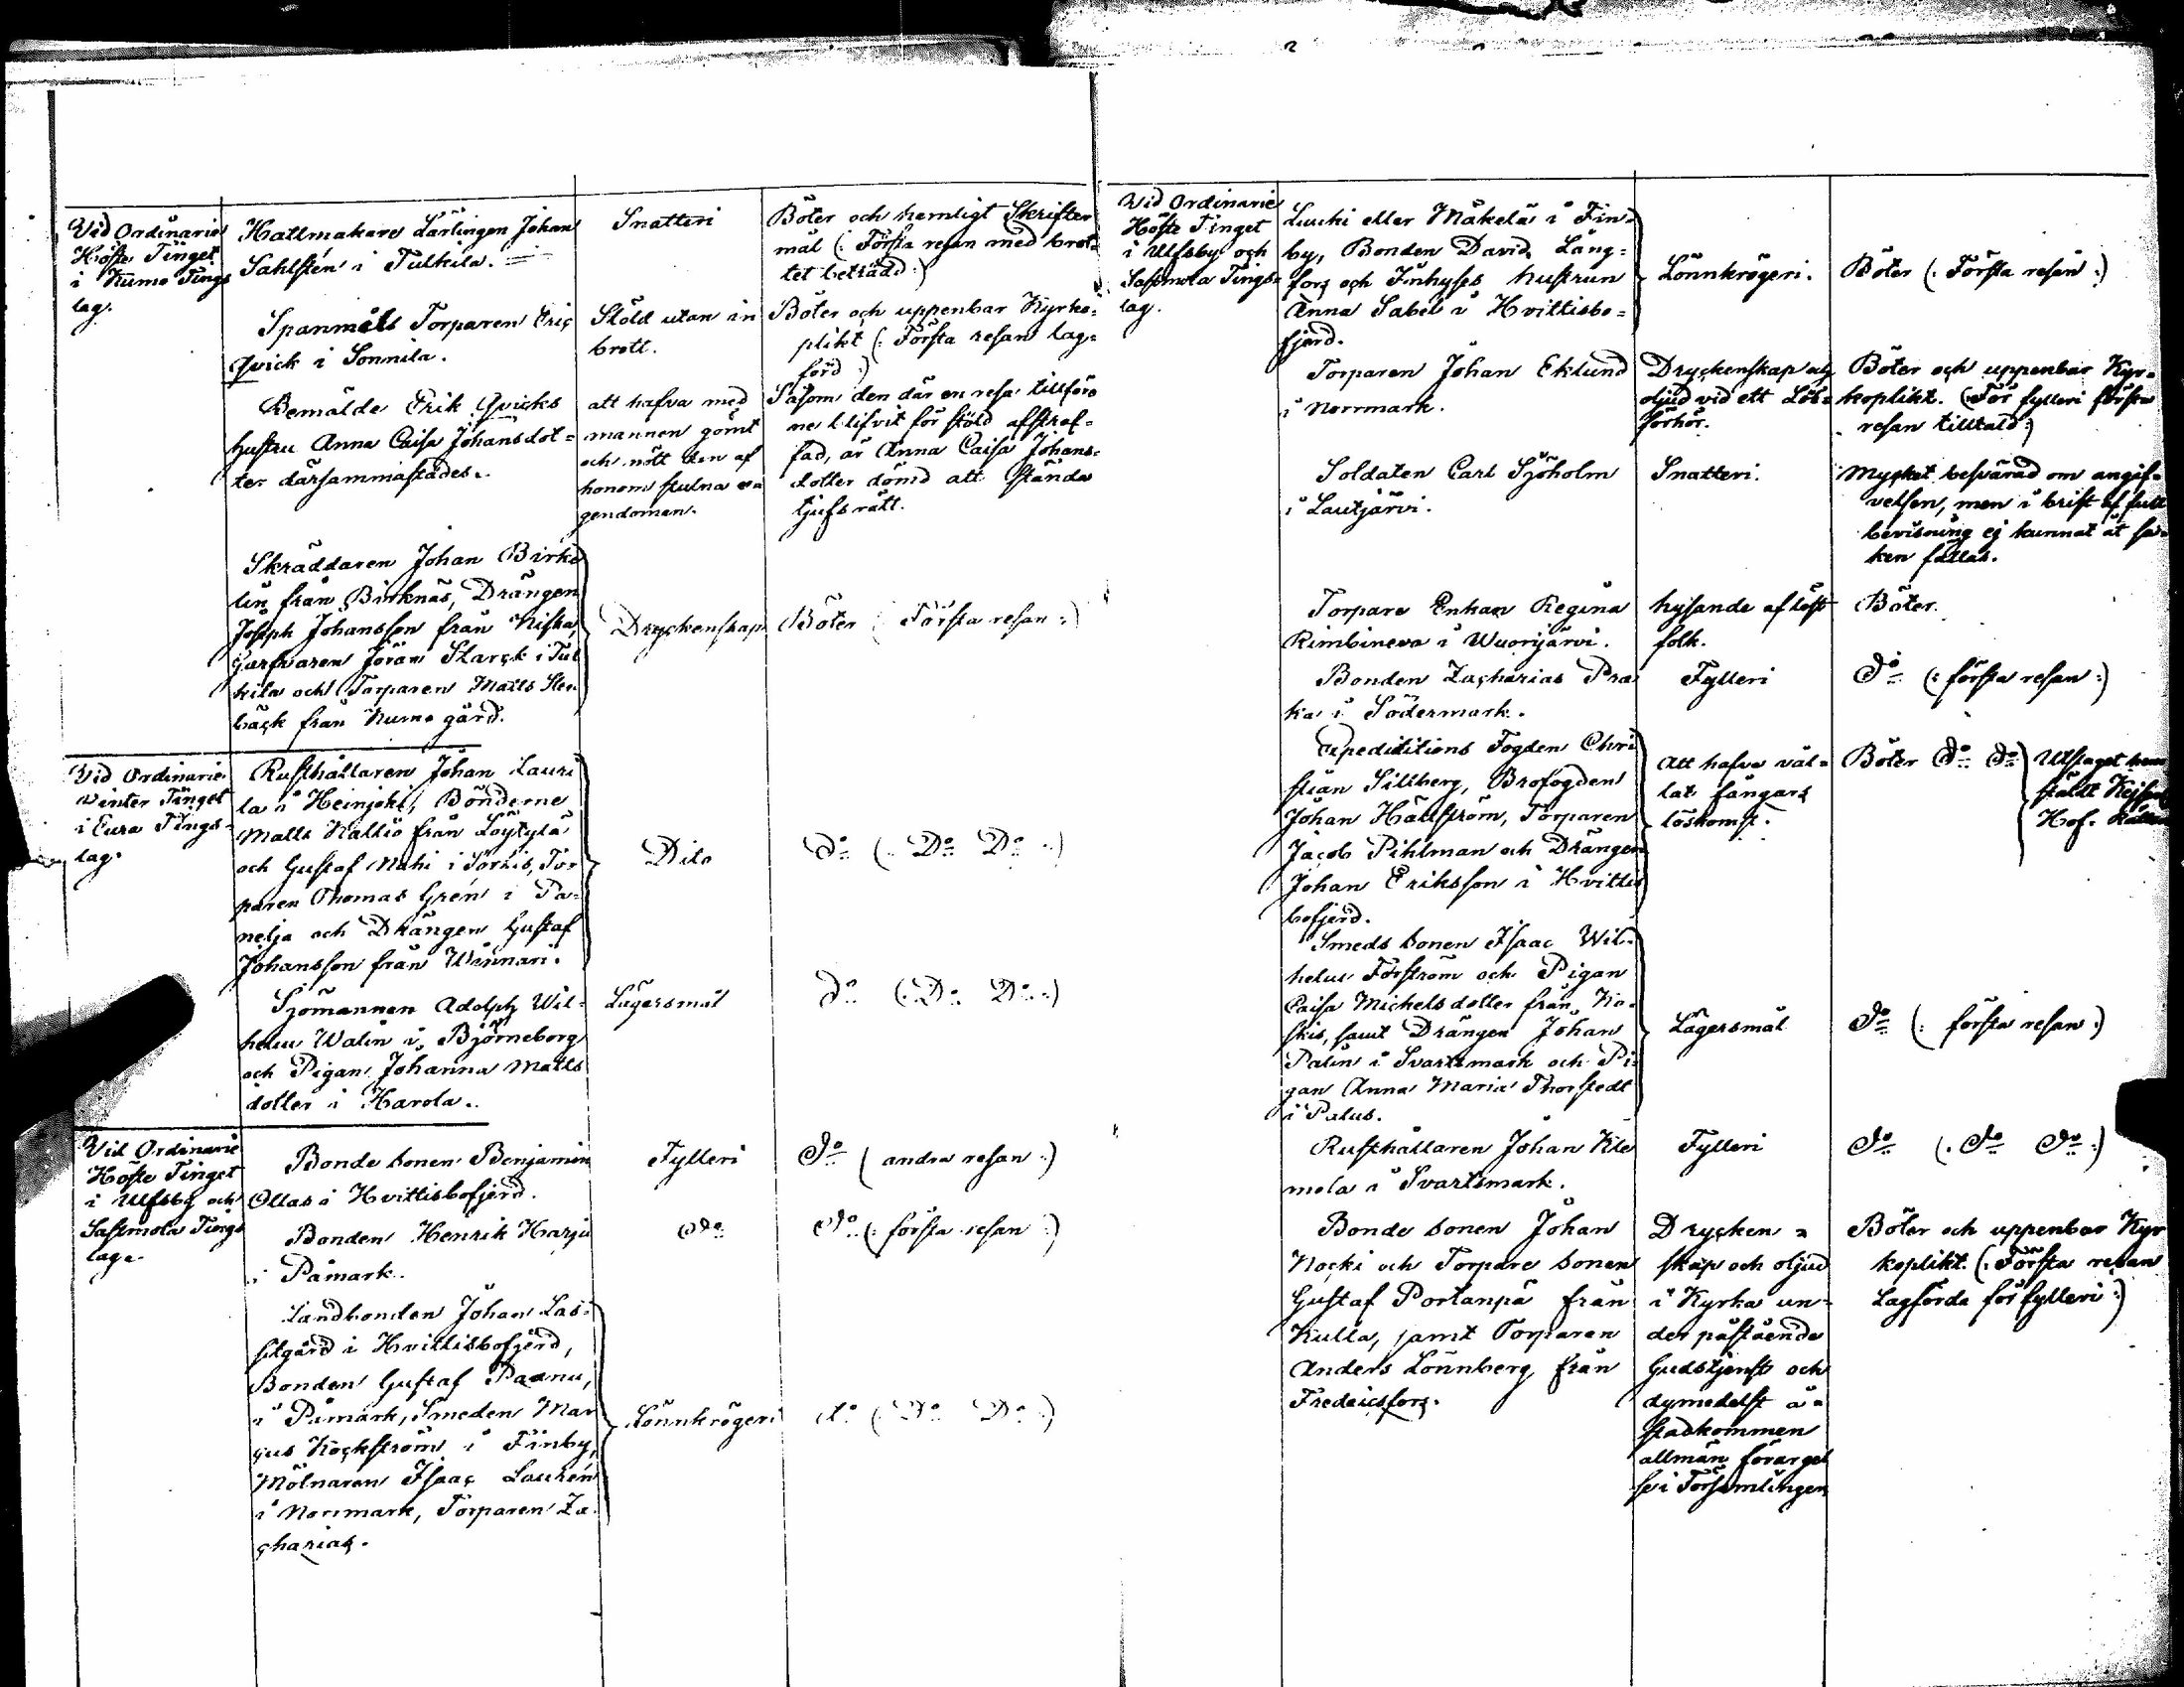 Vid Ordinarie
Höste Tinget
i Kumo Tings
lag.
Hattmakare Lärlingen Johan
Sahlstén i Tulkila.
Snatteri
Böter och hemligt Skrifter
mål (: Första resan med brot=
tet beträdd :)
Spanmåls Torparen Eric
Qvick i Sonnila.
Stöld utan in
brott.
Böter och uppenbar Kyrko=
plikt (: Första resan lag=
förd :)
Bemälde Erik Qvicks
hustru Anna Caisa Johansdot=
ter därsammastädes.
att hafva med
mannen gömt
och nött den af
honom stulna e
gendomen.
Såsom den där en resa tillföre
ne blifvit för stöld afstraf=
fad, är Anna Caisa Johans=
dotter dömd att stånda
tjufsrätt.
Skräddaren Johan Birke
lin från Birknäs, Drängen
Joseph Johansson från Niska,
Garfvaren Jöran Starck i Tul
kila och Torparen Matts Sten
bäck från Kumo gård.
Dryckenskap
Böter (: Första resan :)
Vid Ordinarie
Vinter Tinget
i Eura Tings=
lag.
Rusthållaren Johan Lauri
la i Heinjoki, Bönderne
Matts Kallio från Löytylä
och Gustaf Mähi i Sorkis, Tor
paren Thomas Grén i Pa=
nelja och Drängen Gustaf
Johansson från Winnari.
Dito
do (: Do Do :)
Sjömannen Adolph Wil=
helm Walin i Björneborg
och Pigan Johanna Matts
dotter i Harola.
Lägersmål
do (: Do Do :)
Vid Ordinarie
Höste Tinget
i Ulfsby och
Sastmola Tings
lag.
Bonde Sonen Benjamin
Ollas i Hvittisbofjerd.
Fylleri
do (: andra resan :)
Bonden Henrik Harju
i Påmark.
do
do (: första resan :)
Landbonden Johan Las=
silgård i Hvittisbofjerd,
Bonden Gustaf Paanu,
i Påmark, Smeden Mar
cus Kockström i Finby,
Mölnaren Isaac Laurén
i Norrmark, Torparen Za
charias.
Lönnkrögeri
do (: Do Do :)
Vid Ordinarie
Höste Tinget
i Ulfsby och
Sastmola Tings=
lag.
Luuki eller Mäkelä i Fin=
by, Bonden David Lång=
fors och Inhyses hustrun
Anna Sabel i Hvittisbo=
fjerd.
Lönnkrögeri.
Böter (: Första resan :)
Torparen Johan Eklund
i Norrmark.
Dryckenskap och
oljud vid ett Läs=
förhör.
Böter och uppenbar Kyr=
koplikt. (: För fylleri första
resan tilltald :)
Soldaten Carl Sjöholm
i Lautjärvi.
Snatteri.
Mycket besvärad om angif=
velsen, men i brist af full
bevisning ej kunnat åt sa=
ken fällas.
Torpare Enkan Regina
Rimbineva i Wuorijärvi.
hysande af löst
folk.
Böter.
Bonden Zacharias Pra
ka i Södermark.
Fylleri
do (: första resan :)
Expeditions Fogden Chri
stian Sillberg, Brofogden
Johan Hällström, Torparen
Jacob Pihlman och Drängen
Johan Eriksson i Hvittis
bofjerd.
Att hafva vål=
lat fångars
löskomst.
Böter do do
Utslaget hem
stäldt Kejserl.
Hof. Rätten
Smeds Sonen Isaac Wil=
helm Forström och Pigan
Caisa Michelsdotter från Ka=
skis, samt Drängen Johan
Palin i Svartsmark och Pi=
gan Anna Maria Thorstedt
i Palus.
Lägersmål
do (: första resan :)
Rusthållaren Johan Kle
mola i Svartsmark.
Fylleri
do (: do do :)
Bonde Sonen Johan
Nocki och Torpare Sonen
Gustaf Portanpä från
Kulla, jamt Torparen
Anders Lönnberg från
Fredricsfors.
Drycken=
skap och oljud
i Kyrka un=
der påstående
Gudstjenst och
dymedelst å=
stadkommen
allmän förargel
se i Församlingen
Böter och uppenbar Kyr
koplikt. (: Första resan
Lagförda för fylleri :)